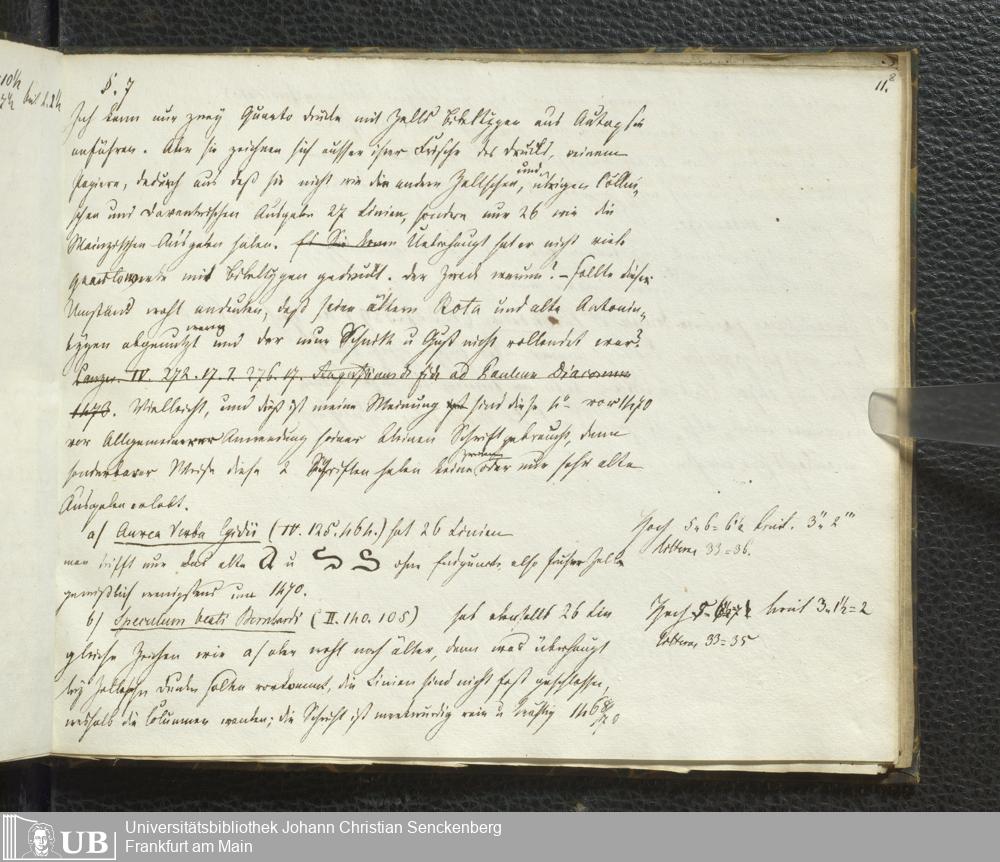 10½
7½ breit 1. 2½
11.8
§. 7
Ich kann nur zwey Quarto drucke mit Zells Bibeltypen aus Autopsie
anführen. Aber sie zeichnen sich ausser ihrer Frische des Drucks, reinem
Papiere, dadurch aus daß sie nicht wie die andern Zellschen, und übrigen Cölni-
schen und Daventrischen Ausgaben 27 Linien, sondern nur 26 wie die
Mainzischen Ausgaben haben. Es Sie Ueberhaupt hat er nicht viele
Quartowerke mit Bibeltypen gedruckt. Der Zweck warum? – sollte dieser
Umstand wohl andeuten, daß seine ältern Rota und alte Antonin-
typen abgenutzt waren und der neue Schnitt u Guß nicht vollendet war?
Panzer. IV. 272. 17. 2 276. 17. Augustinus de fide ad Paulum Diaconum
1473. Vielleicht, und dieß ist meine Meinung sind diese 4° vor 1470
vor Allgemeiner Anwendung seiner kleinen Schrift gebraucht, denn
sonderbarer Weise diese 2 Schriften haben keine oder nur sehr alte
Ausgaben erlebt.
a) Aurea Verba Egidii (IV. 125. 464.) hat 26 Linien
Hoch 5=6= 6½ breit. 3" 2"'
man trifft nur das alte u ohne Endpuncte, also früher Zelle
Lettern 33=36.
gewißlich wenigstens um 1470.
b) Speculum beati Bernhardi (II. 140. 105) hat ebenfalls 26 Lin
Hoch 5= breit 3=1½=2
gleiche Zeichen wie a) aber wohl noch älter, denn was überhaupt
Lettern 33=35
bey selten vorkommt, die Linien sind nicht fest geschlossen,
weshalb die Columnen wanken; die Schrift ist merkwürdig rein u kräftig 1468/70
UB
Universitätsbibliothek Johann Christian Senckenberg
Frankfurt am Main